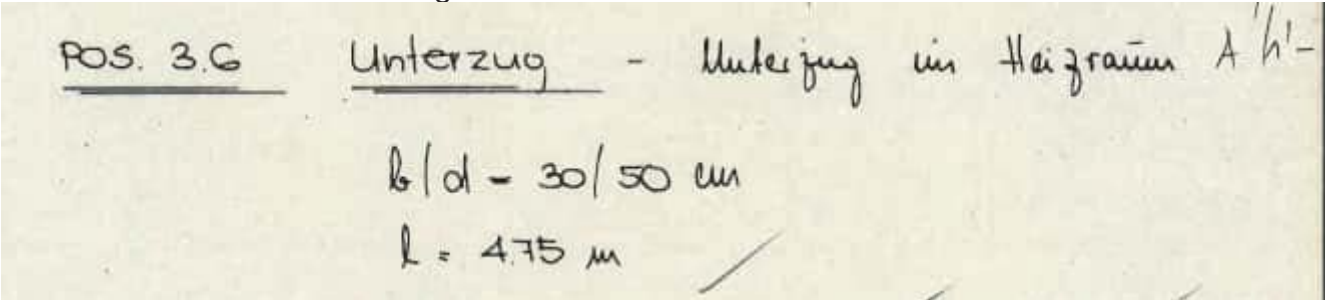 POS. 3.6 Unterzug - Unterzug im Heizraum
b/d = 30/50 cm
l = 4.75 m